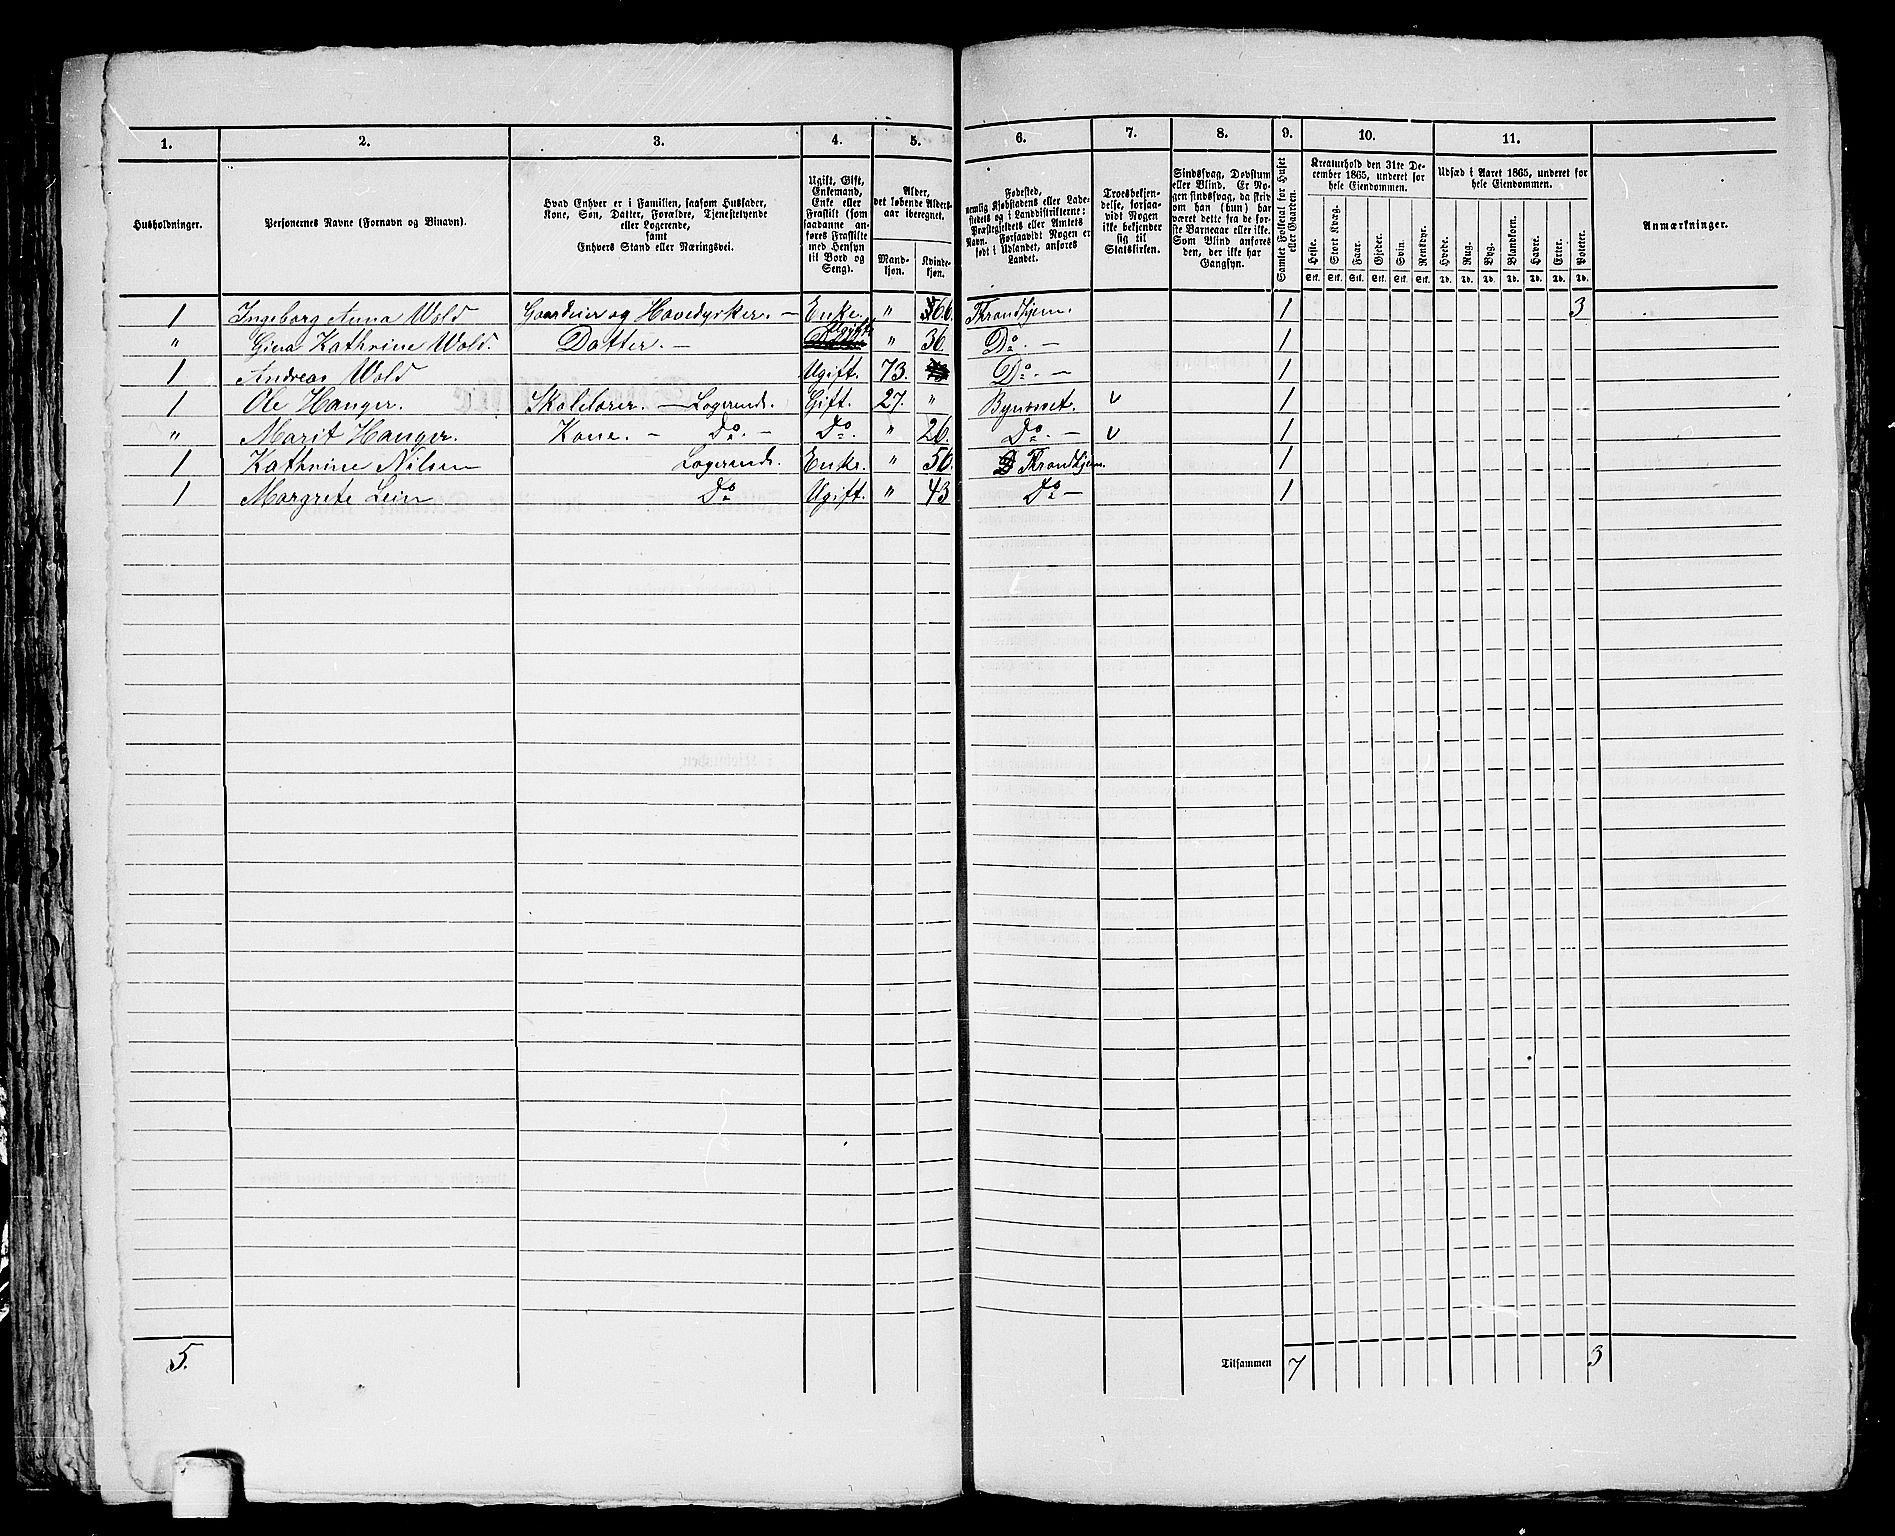 1. 2. 3. 4. 5. 6. 7. 8. 9. 10. 11.
Husholdninger.
Personernes Navne (Fornavn og Binavn).
Hvad Enhver er i Familien, saasom Husfader,
Kone, Søn, Datter, Forældre, Tjenestetyende
eller Logerende,
samt
Enhvers Stand eller Næringsvei.
Ugift, Gift,
Enkemand,
Enke eller
Fraskilt (som
saadanne an-
føres Fraskilte
med Hensyn
til Bord og
Seng).
Alder,
det løbende Alders-
aar iberegnet.
Mand-
kjøn.
Kvinde-
kjøn.
Fødested,
nemlig Kjøbstadens eller Lade-
stedets og i Landdistrikterne:
Præstegjeldets eller Amtets
Navn. Forsaavidt Nogen er
født i Udlandet, anføres
Landet.
Troesbekjen-
delse, forsaa-
vidt Nogen
ikke bekjender
sig til
Statskirken.
Sindssvag, Døvstum
eller Blind. Er No-
gen sindssvag, da skriv
om han (hun) har
været dette fra de før-
ste Barneaar eller ikke.
Som Blind anføres
den, der ikke har
Gangsyn.
Samlet Folketal for Huset
eller Gaarden.
Kreaturhold den 31te De-
cember 1865, underet for
hele Eiendommen.
Heste. Stort Kvæg. Faar. Gjeder. Svin. Rensdyr.
Stk. Stk. Stk. Stk. Stk. Stk.
Udsæd i Aaret 1865, underet for
hele Eiendommen.
Hvede. Rug. Byg. Blandkorn. Havre. Erter. Poteter.
Td. Td. Td. Td. Td. Td. Td.
Anmærkninger.
1 Ingeborg Anna Wold Gaardeier og Havedyrker. — Enke. " 66. Throndhjem. 1 3
" Gina Kathrine Wold. Datter. — Ugift " 36. Do. — 1
1 Andreas Wold Ugift. 73. Do. — 1
1 Ole Hanger. Skolelærer. — Logerende. Gift. 27. " Bynæsset. v 1
" Marit Hanger. Kone. — Do. — Do. " 26. Do. — v 1
1 Kathrine Nilsen Logerende. Enke. " 50. Throndhjem. 1
1 Margrete Lein Do Ugift. " 43 Do — 1
5. Tilsammen 7 3